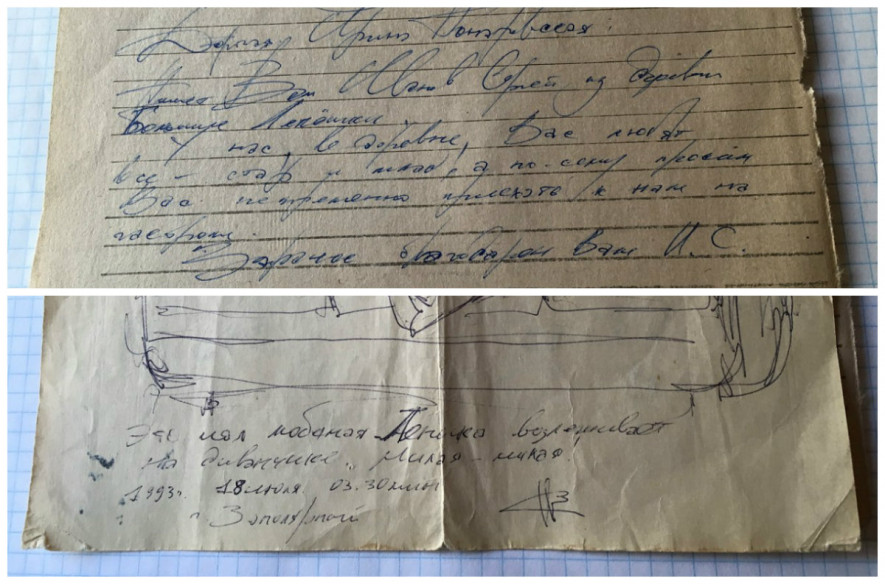 Дорогая Ирина Понаровская!
Пишет Вам Иванов Сергей из деревни
Большие Лепёшки.
У нас, в деревне, Вас любят
все - стар и млад, а по-сему просим
Вас непременно приехать к нам на
гастроли.
Заранее благодарен Ваш И. С.
Это моя любимая Ленка возлеживает
на диванчике. Милая-милая.
1993г. 18 июля. 03.30 мин
г Заполярный